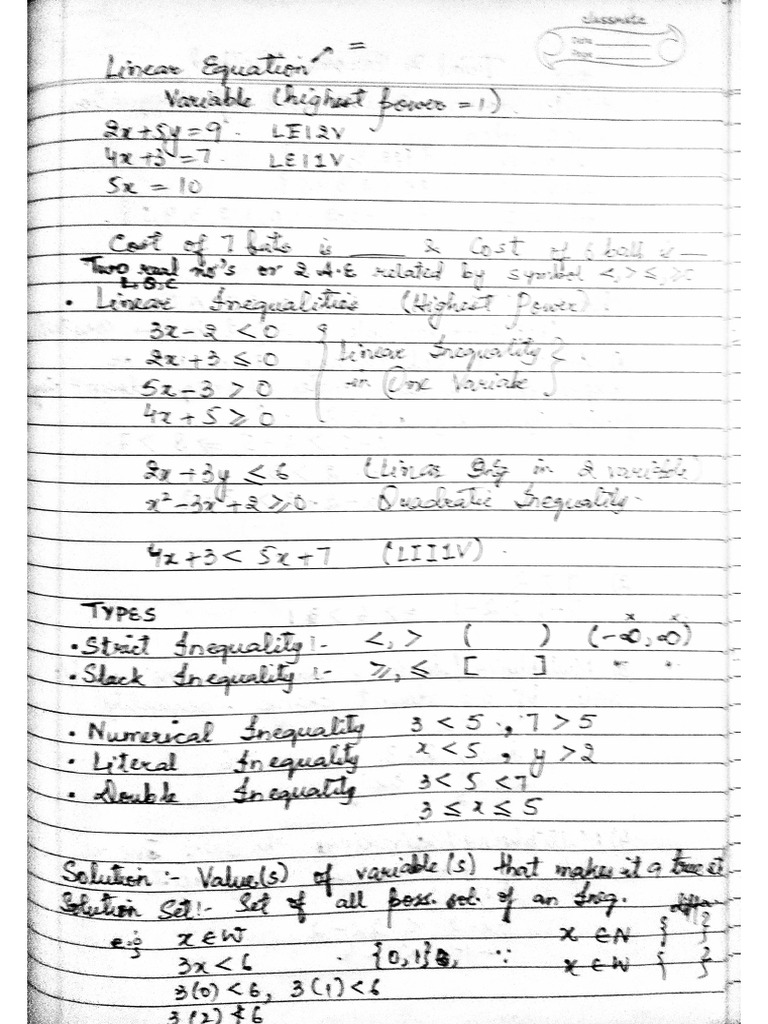 classmate
Date
Page
=
Linear Equation
Variable (highest power = 1)
2x+5y=9. LE12V
4x+3=7. LE11V
5x = 10
Cost of 7 bats is ____ & Cost of 6 ball is __
Two real no's or 2 A.E related by symbol <,> ≤, ≥
• Linear Inequalities (Highest Power).
3x-2 < 0
2x+3 ≤ 0 {Linear Inequality}
5x-3 > 0 in One Variable
4x+5 ≥ 0
2x+3y ≤ 6 (Linear Inq in 2 variable)
x²-3x+2 ≥ 0. Quadratic Inequality.
4x+3 < 5x+7 (LII1V).
TYPES
• Strict Inequality :- <, > ( ) (-∞, ∞)
• Slack Inequality :- ≥, ≤ [ ]
• Numerical Inequality 3 < 5, 7 > 5
• Literal Inequality x < 5, y > 2
• Double Inequality 3 < 5 < 7
3 ≤ x ≤ 5
Solution :- Value(s) of variable(s) that makes it a true st
Solution Set:- Set of all poss. sol. of an Ineq.
e.g x ∈ W x ∈ N { }
3x < 6 . {0,1}, ∵ x ∈ W { }
3(0) < 6, 3(1) < 6
3(2) ≮ 6